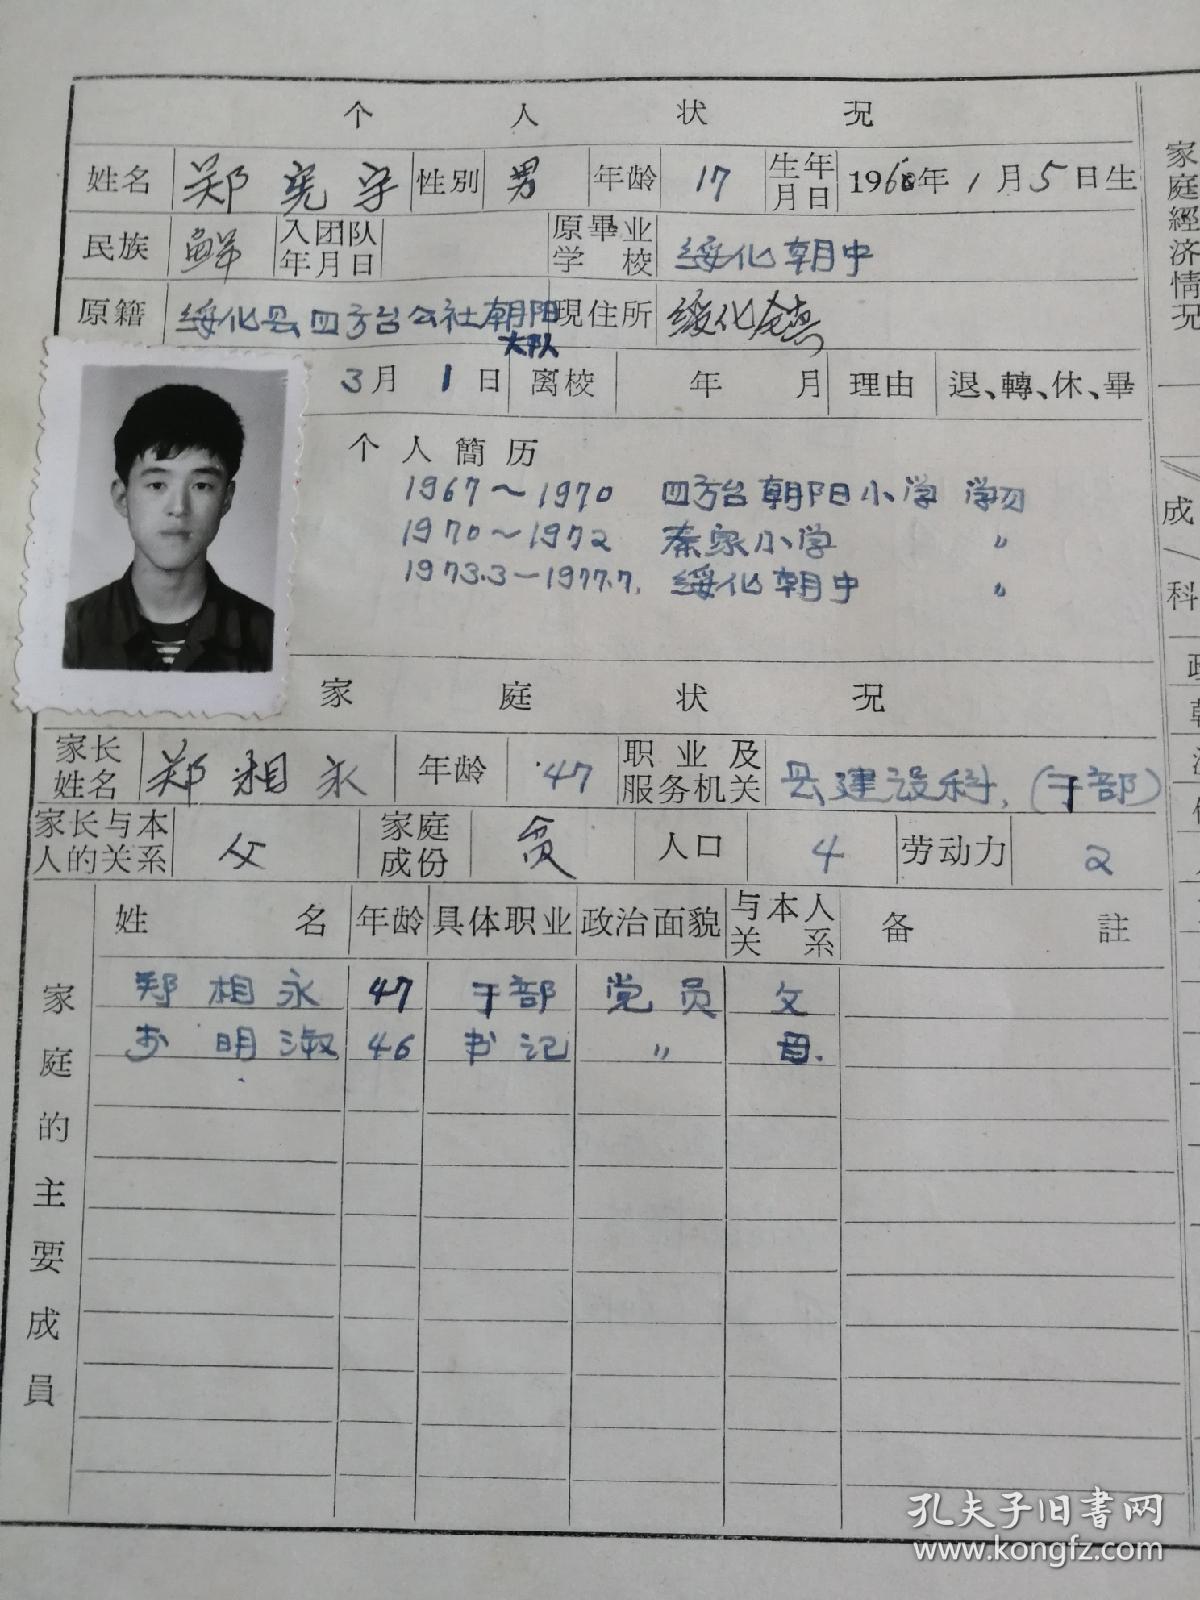 个人状况
姓名 郑宪宇 性别 男 年龄 17 生年月日 1960年1月5日生
民族 鲜 入团队年月日 原畢业学校 绥化朝中
原籍 绥化县四方台公社朝阳大队 現住所 绥化镇
3月1日 离校 年 月 理由 退、轉、休、畢
个人簡历
1967～1970 四方台朝阳小学 学习
1970～1972 秦家小学 〃
1973.3—1977.7. 绥化朝中 〃
家庭状况
家长姓名 郑相永 年龄 47 职业及服务机关 县建设科.(干部)
家长与本人的关系 父 家庭成份 贫 人口 4 劳动力 2
家庭的主要成員
姓名 年龄 具体职业 政治面貌 与本人关系 备註
郑相永 47 干部 党员 父
李明淑 46 书记 〃 母.
家庭經济情况
成
科
孔夫子旧书网
www.kongfz.com